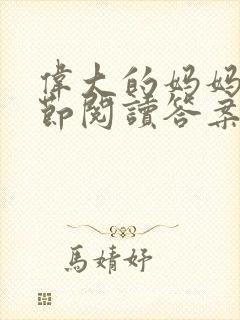 偉大的妈妈
節閱讀答案
馬婧妤